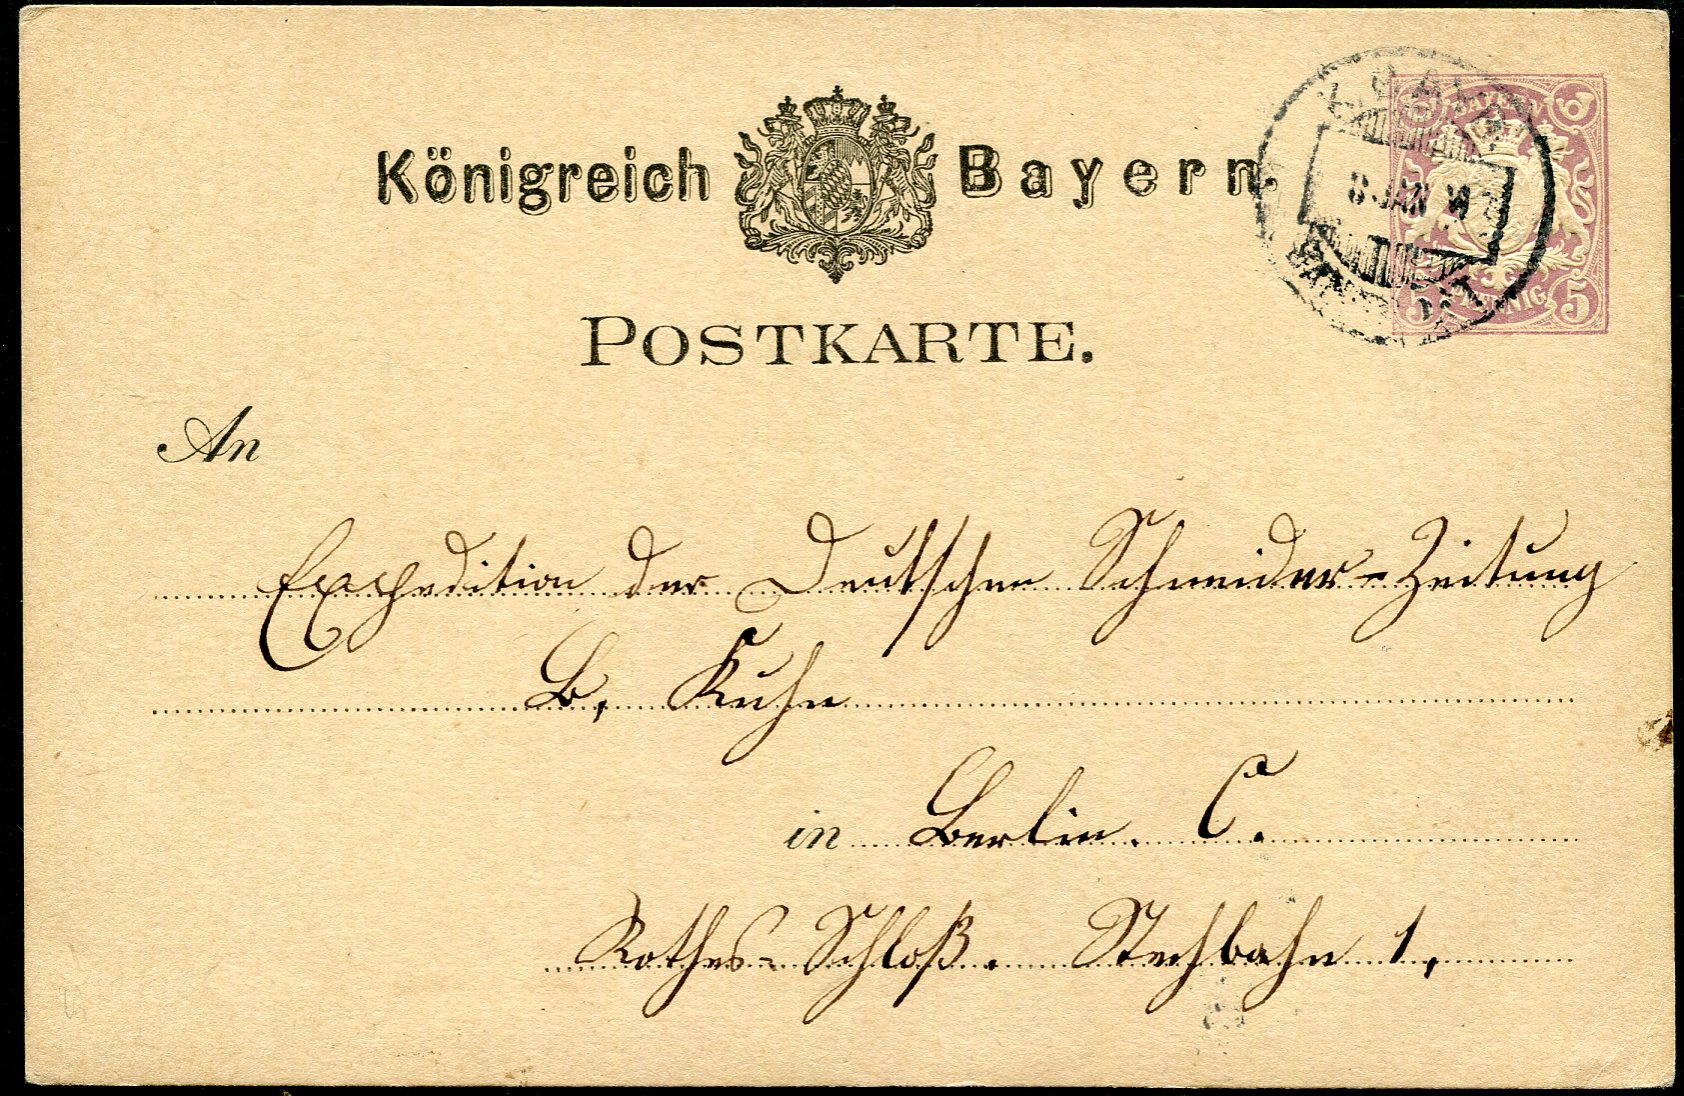 Königreich Bayern.
BAYERN
8 JAN
5 PFENNIG 5
POSTKARTE.
An
Expedition der Deutschen Schneider-Zeitung
B. Kuhn
in Berlin. C.
Rothes-Schloß. Stechbahn 1,